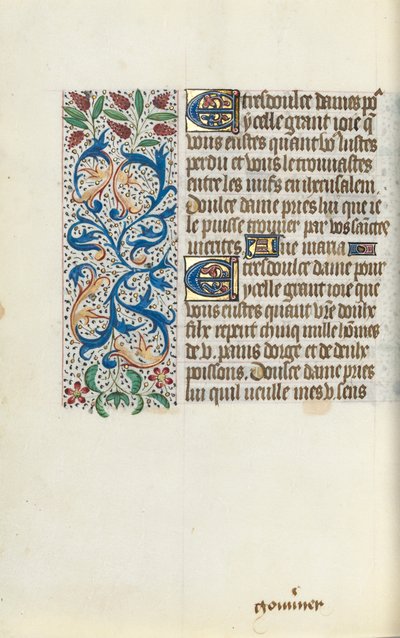 E tresdoulce dame poʳ
ycelle grant ioie q̄
vous eustes quant voꝰ leustes
perdu et vous le trouuastes
entre les iuifs en iherusalem
Doulce dame pries lui que ie
le puisse trouuer par vos saintes
merites. Aue maria
E tresdoulce dame pour
ycelle grant ioie que
vous eustes quant vr̄e doulz
filz reput chinq mille hōmes
de v. pains dorge et de deux
poissons. Doulce dame pries
lui quil vueille mes v sens
gouu'ner